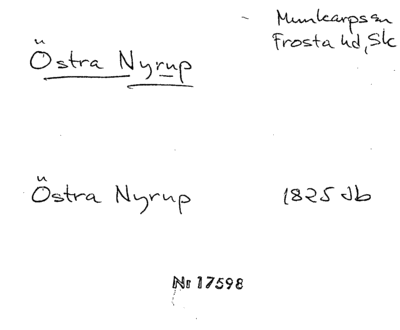 Östra Nyrup
Munkarps sn
Frosta hd, Sk
Östra Nyrup 1825 Jb
Nr 17598